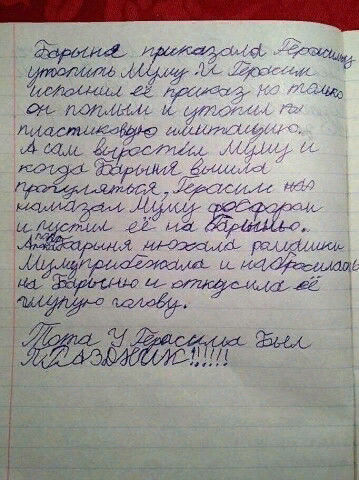 Барыня приказала Герасиму
утопить Муму И Герасим
исполнил её приказ но только
он поплыл и утопил
пластиковую имитацию.
А сам вырастел Муму и
когда Барыня вышла
прогуляться, Герасим
намазал Муму фосфором
и пустил её на Барыню.
пока Барыня нюхала ромашки
Муму прибежала и набросилась
на Барыню и откусила её
глупую голову.
Тота У Герасима Был
ПРАЗДНИК!!!!!!